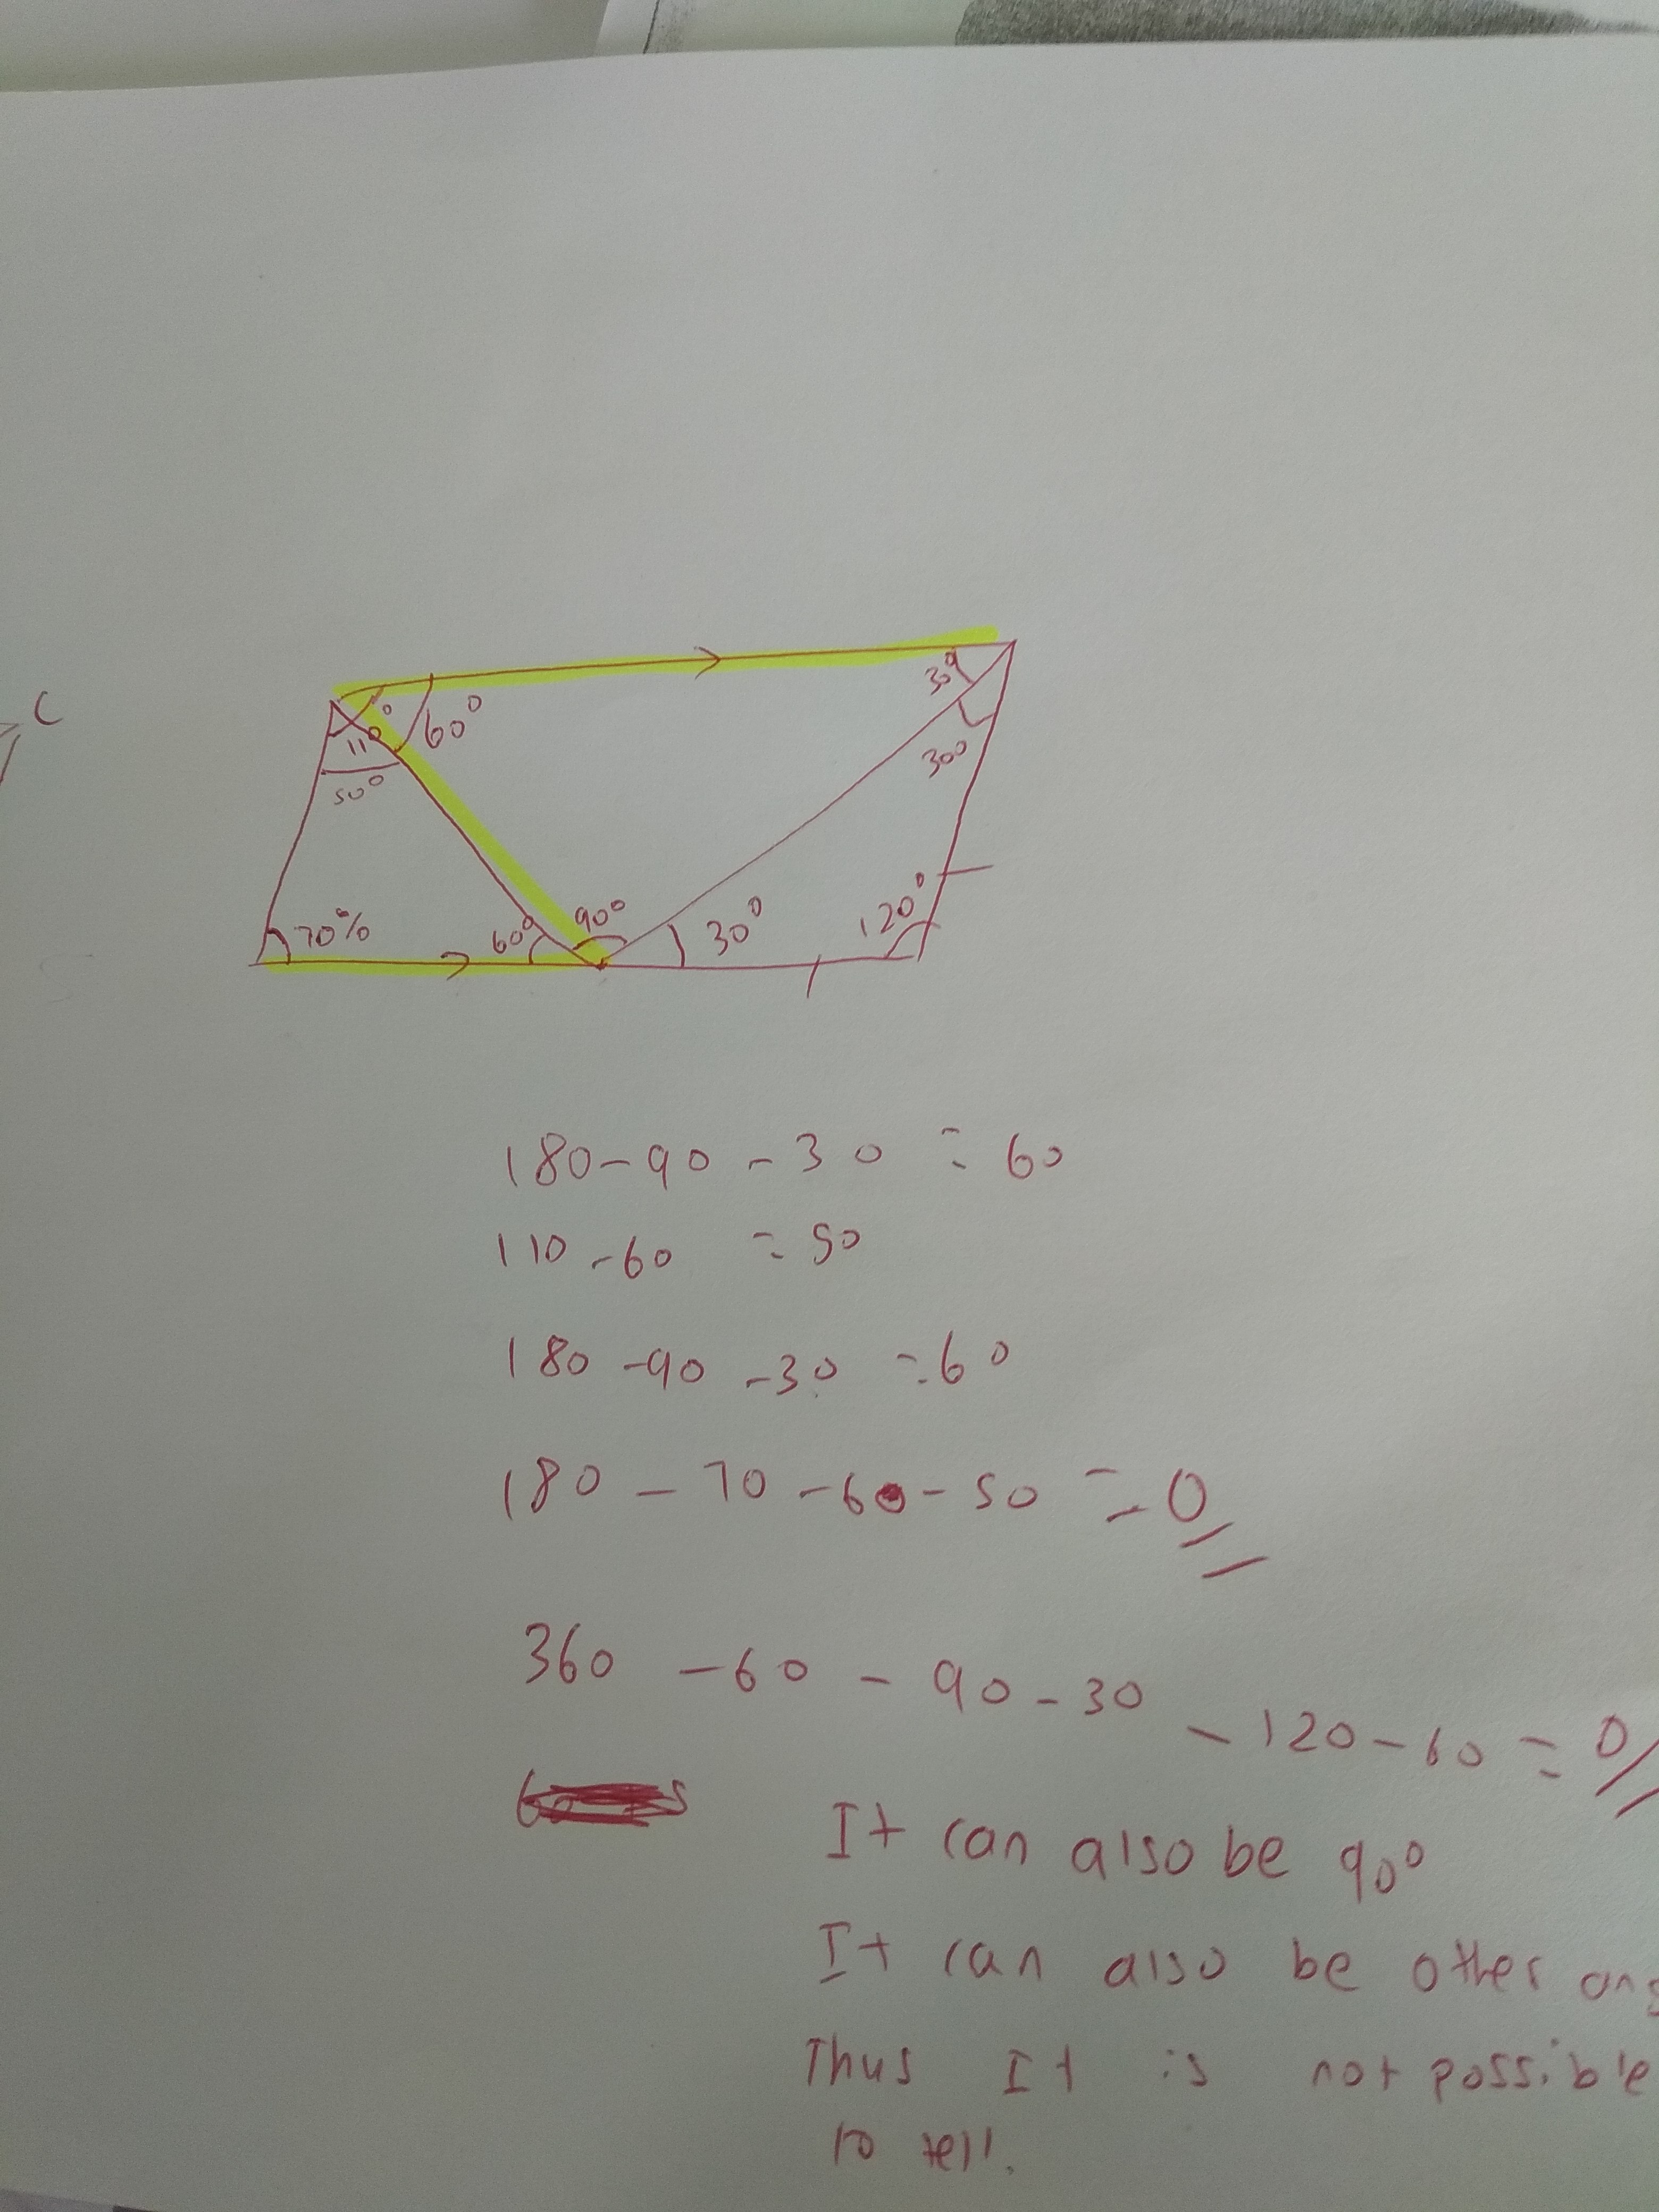 C
30°
60°
110°
30°
50°
120°
90°
30°
60°
70%
180 - 90 - 30 = 60
110 - 60 = 50
180 - 90 - 30 = 60
180 - 70 - 60 - 50 = 0
360 - 60 - 90 - 30 - 120 - 60 = 0
It can also be 90°
It can also be other ang
Thus It is not possible
to tell.